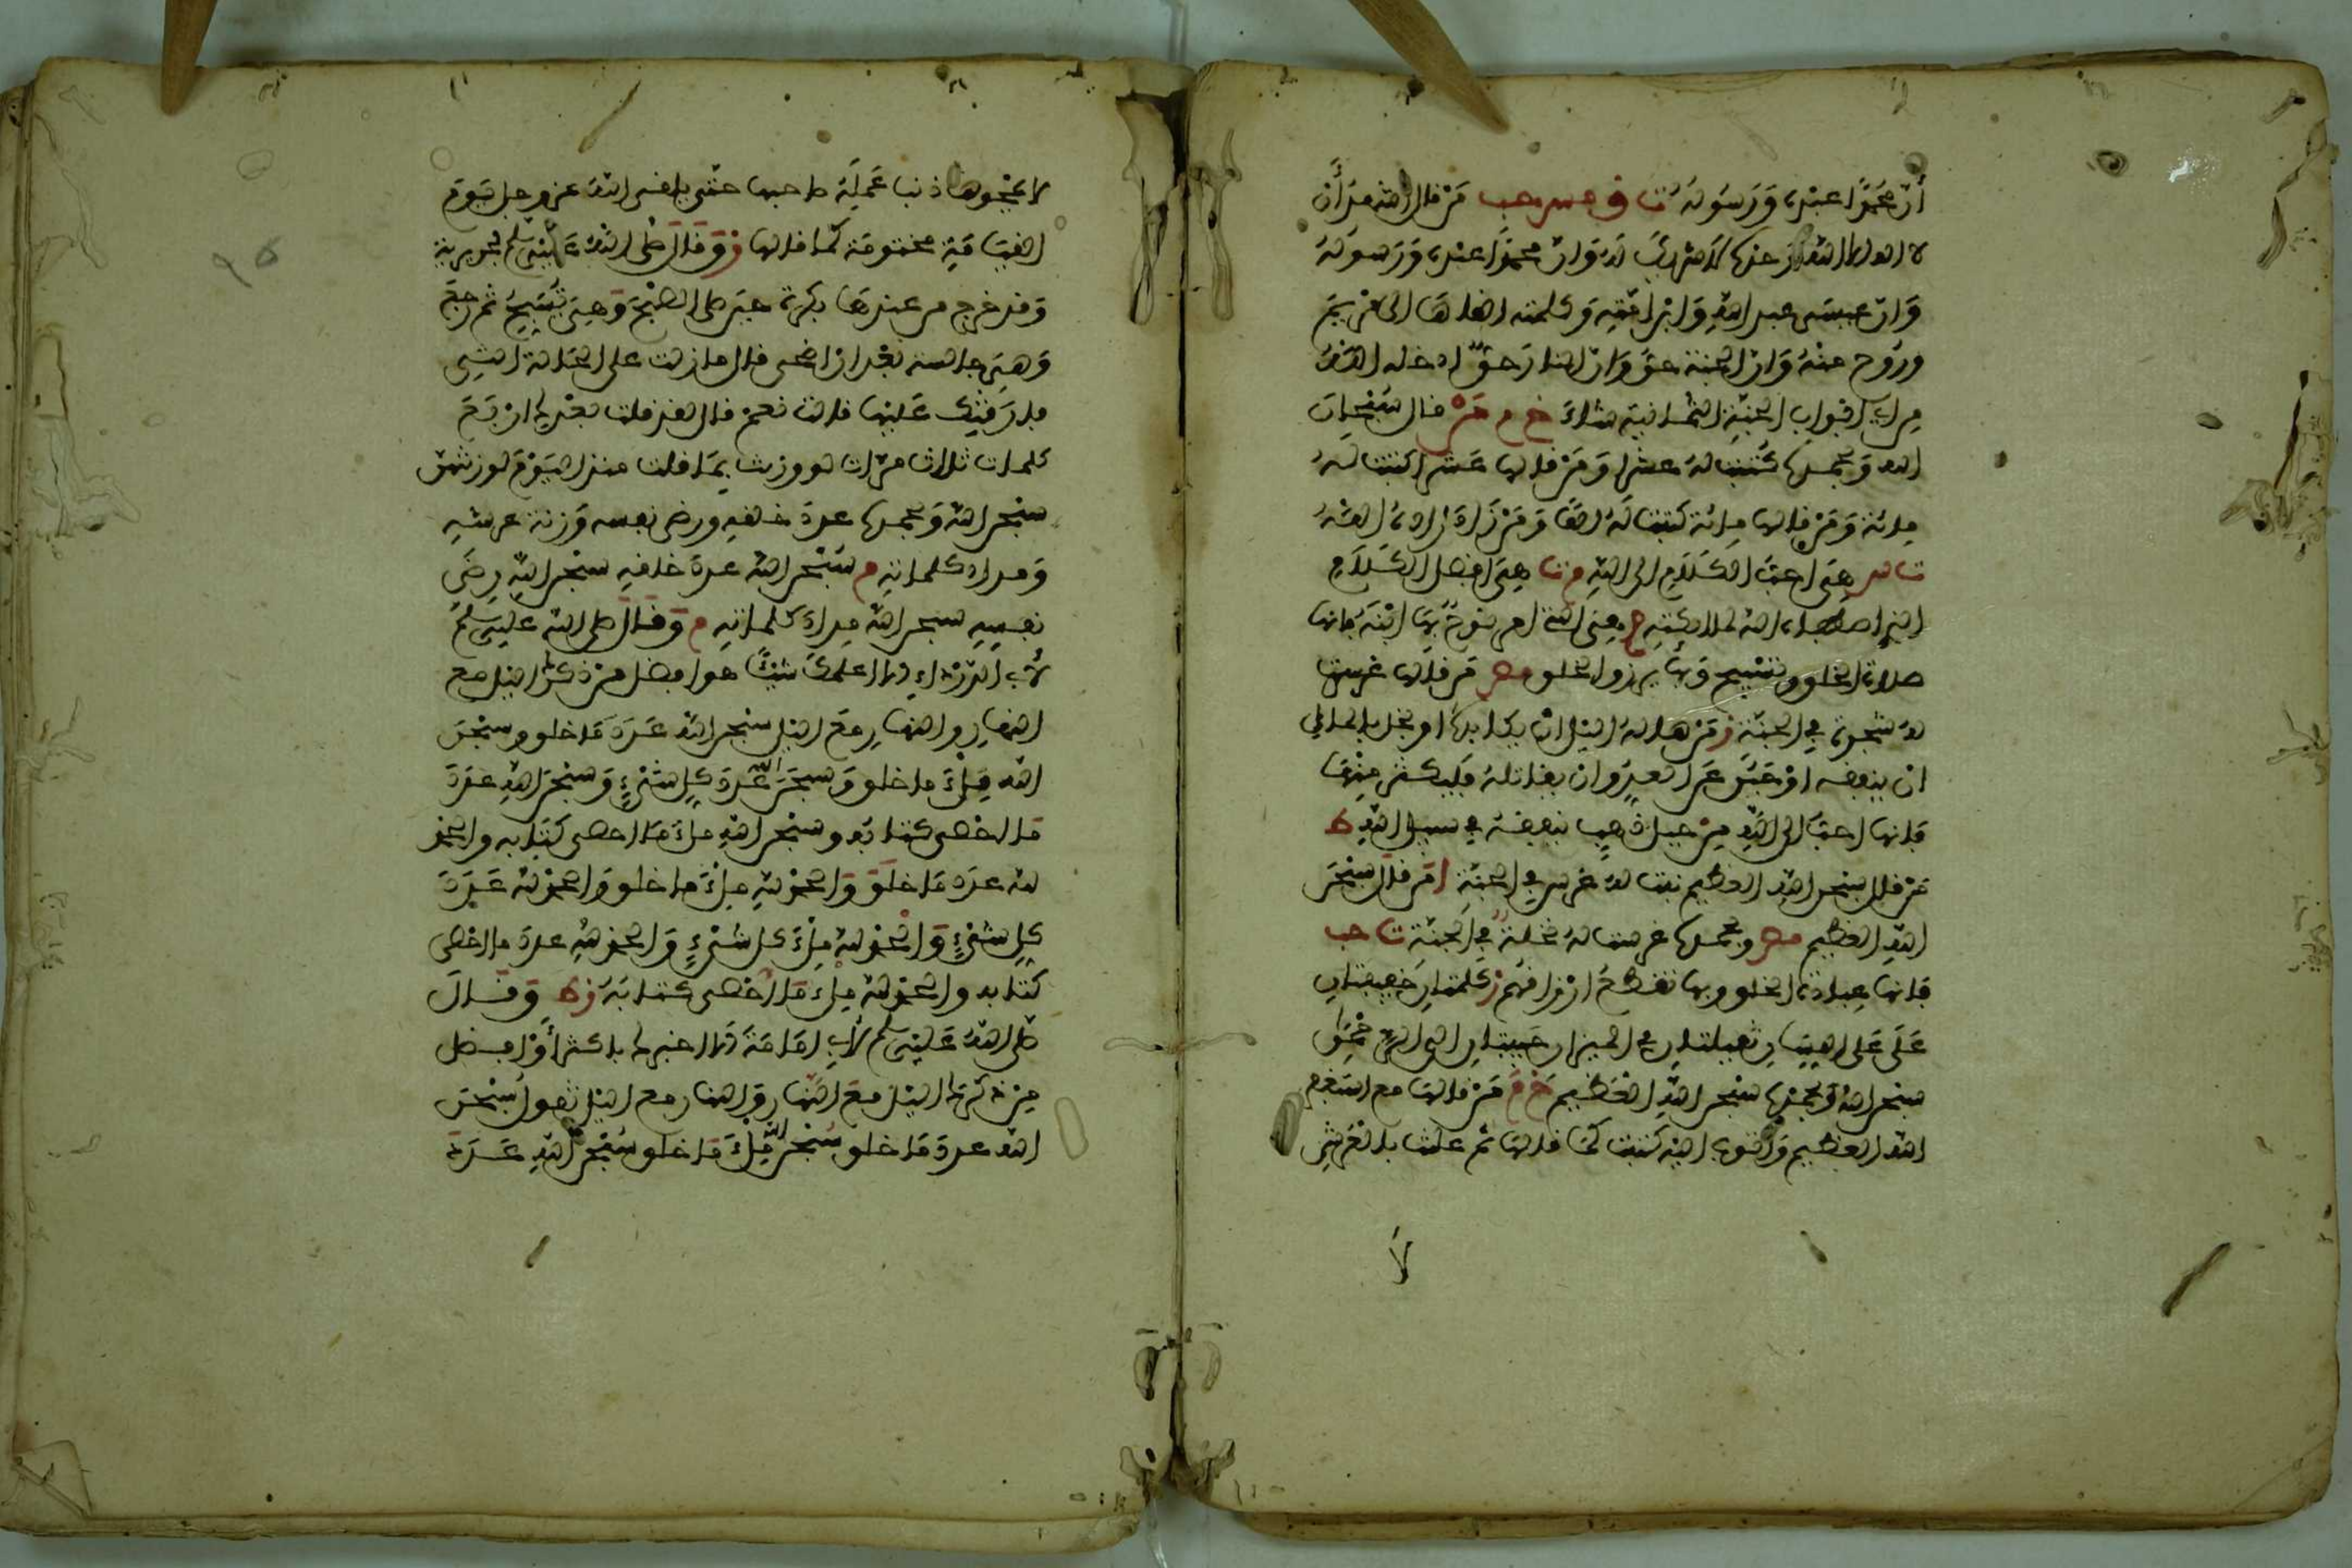 أن محمدا عبده ورسوله ت ق مس حب من قال أشهد أن
لا اله الا الله وحده لا شريك له وان محمدا عبده ورسوله
وان عيسى عبد الله وابن أمته وكلمته القاها الى مريم
وروح منه وان الجنة حق وان النار حق ادخله الله
من اي ابواب الجنة الثمانية شاء خ م من قال سبحان
الله وبحمده كتبت له عشرا ومن قالها عشرا كتبت له
مائة ومن قالها مائة كتبت له الفا ومن زاد زاده الله
ت س هي احب الكلام الى الله م ت هي افضل الكلام
الذي اصطفاه الله لملائكته م هي التي امر نوح بها ابنه فانها
صلاة الخلق وتسبيح وبها يرزق الخلق مص من قالها غرست
له شجرة في الجنة ز من هاله الليل ان يكابده او بخل بالمال
ان ينفقه او جبن عن العدو ان يقاتله فليكثر منها
فانها احب الى الله من جبل ذهب ينفقه في سبيل الله ط
من قال سبحن الله العظيم نبت له غرس في الجنة ا من قال سبحن
الله العظيم وبحمده غرست له نخلة في الجنة ت حب
فانها عبادة الخلق وبها تقطع ارزاقهم ز كلمتان خفيفتان
على اللسان ثقيلتان في الميزان حبيبتان الى الرحمن
سبحن الله وبحمده سبحن الله العظيم خ م من قالها مع استغفر
الله العظيم واتوب اليه كتبت كما قالها ثم علقت بالعرش
لا
لا يمحوها ذنب عمله صاحبها حتى يلقى الله عز وجل يوم
القيامة مختومة كما قالها ز وقال صلى الله عليه وسلم لجويرية
وقد خرج من عندها بكرة حين صلى الصبح وهي تسبح ثم رجع
وهي جالسة بعد ان اضحى قال ما زلت على الحالة التي
فارقتك عليها قالت نعم قال لقد قلت بعدك اربع
كلمات ثلاث مرات لو وزنت بما قلت منذ اليوم لوزنتهن
سبحن الله وبحمده عدد خلقه ورضى نفسه وزنة عرشه
ومداد كلماته م سبحن الله عدد خلقه سبحن الله رضى
نفسه سبحن الله مداد كلماته م وقال صلى الله عليه وسلم
لأبي الدرداء الا اعلمك شيئا هو افضل من ذكرك الليل مع
النهار والنهار مع الليل سبحن الله عدد ما خلق وسبحن
الله ملء ما خلق وسبحن الله عدد كل شيء وسبحن الله عدد
ما احصى كتابه وسبحن الله ملء ما احصى كتابه والحمد
لله عدد ما خلق والحمد لله ملء ما خلق والحمد لله عدد
كل شيء والحمد لله ملء كل شيء والحمد لله عدد ما احصى
كتابه والحمد لله ملء ما احصى كتابه ز ط وقال
صلى الله عليه وسلم لأبي امامة الا اخبرك باكثر أو افضل
من ذكرك الليل مع النهار والنهار مع الليل تقول سبحن
الله عدد ما خلق سبحن الله ملء ما خلق سبحن الله عدد